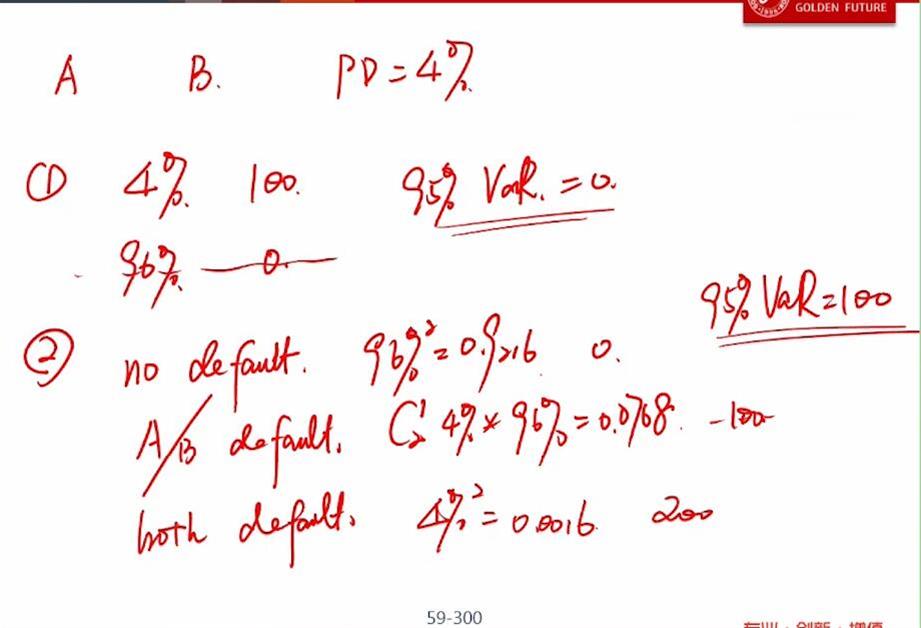 GOLDEN FUTURE
A B. PD=4%
① 4% 100. 95% VaR.=0.
96% — 0. —
95% VaR=100
② no default. 96%²=0.9216 0.
A/B default. C₂¹ 4%×96%=0.0768. -100
both default. 4%²=0.0016 200
59-300
专业·创新·增值